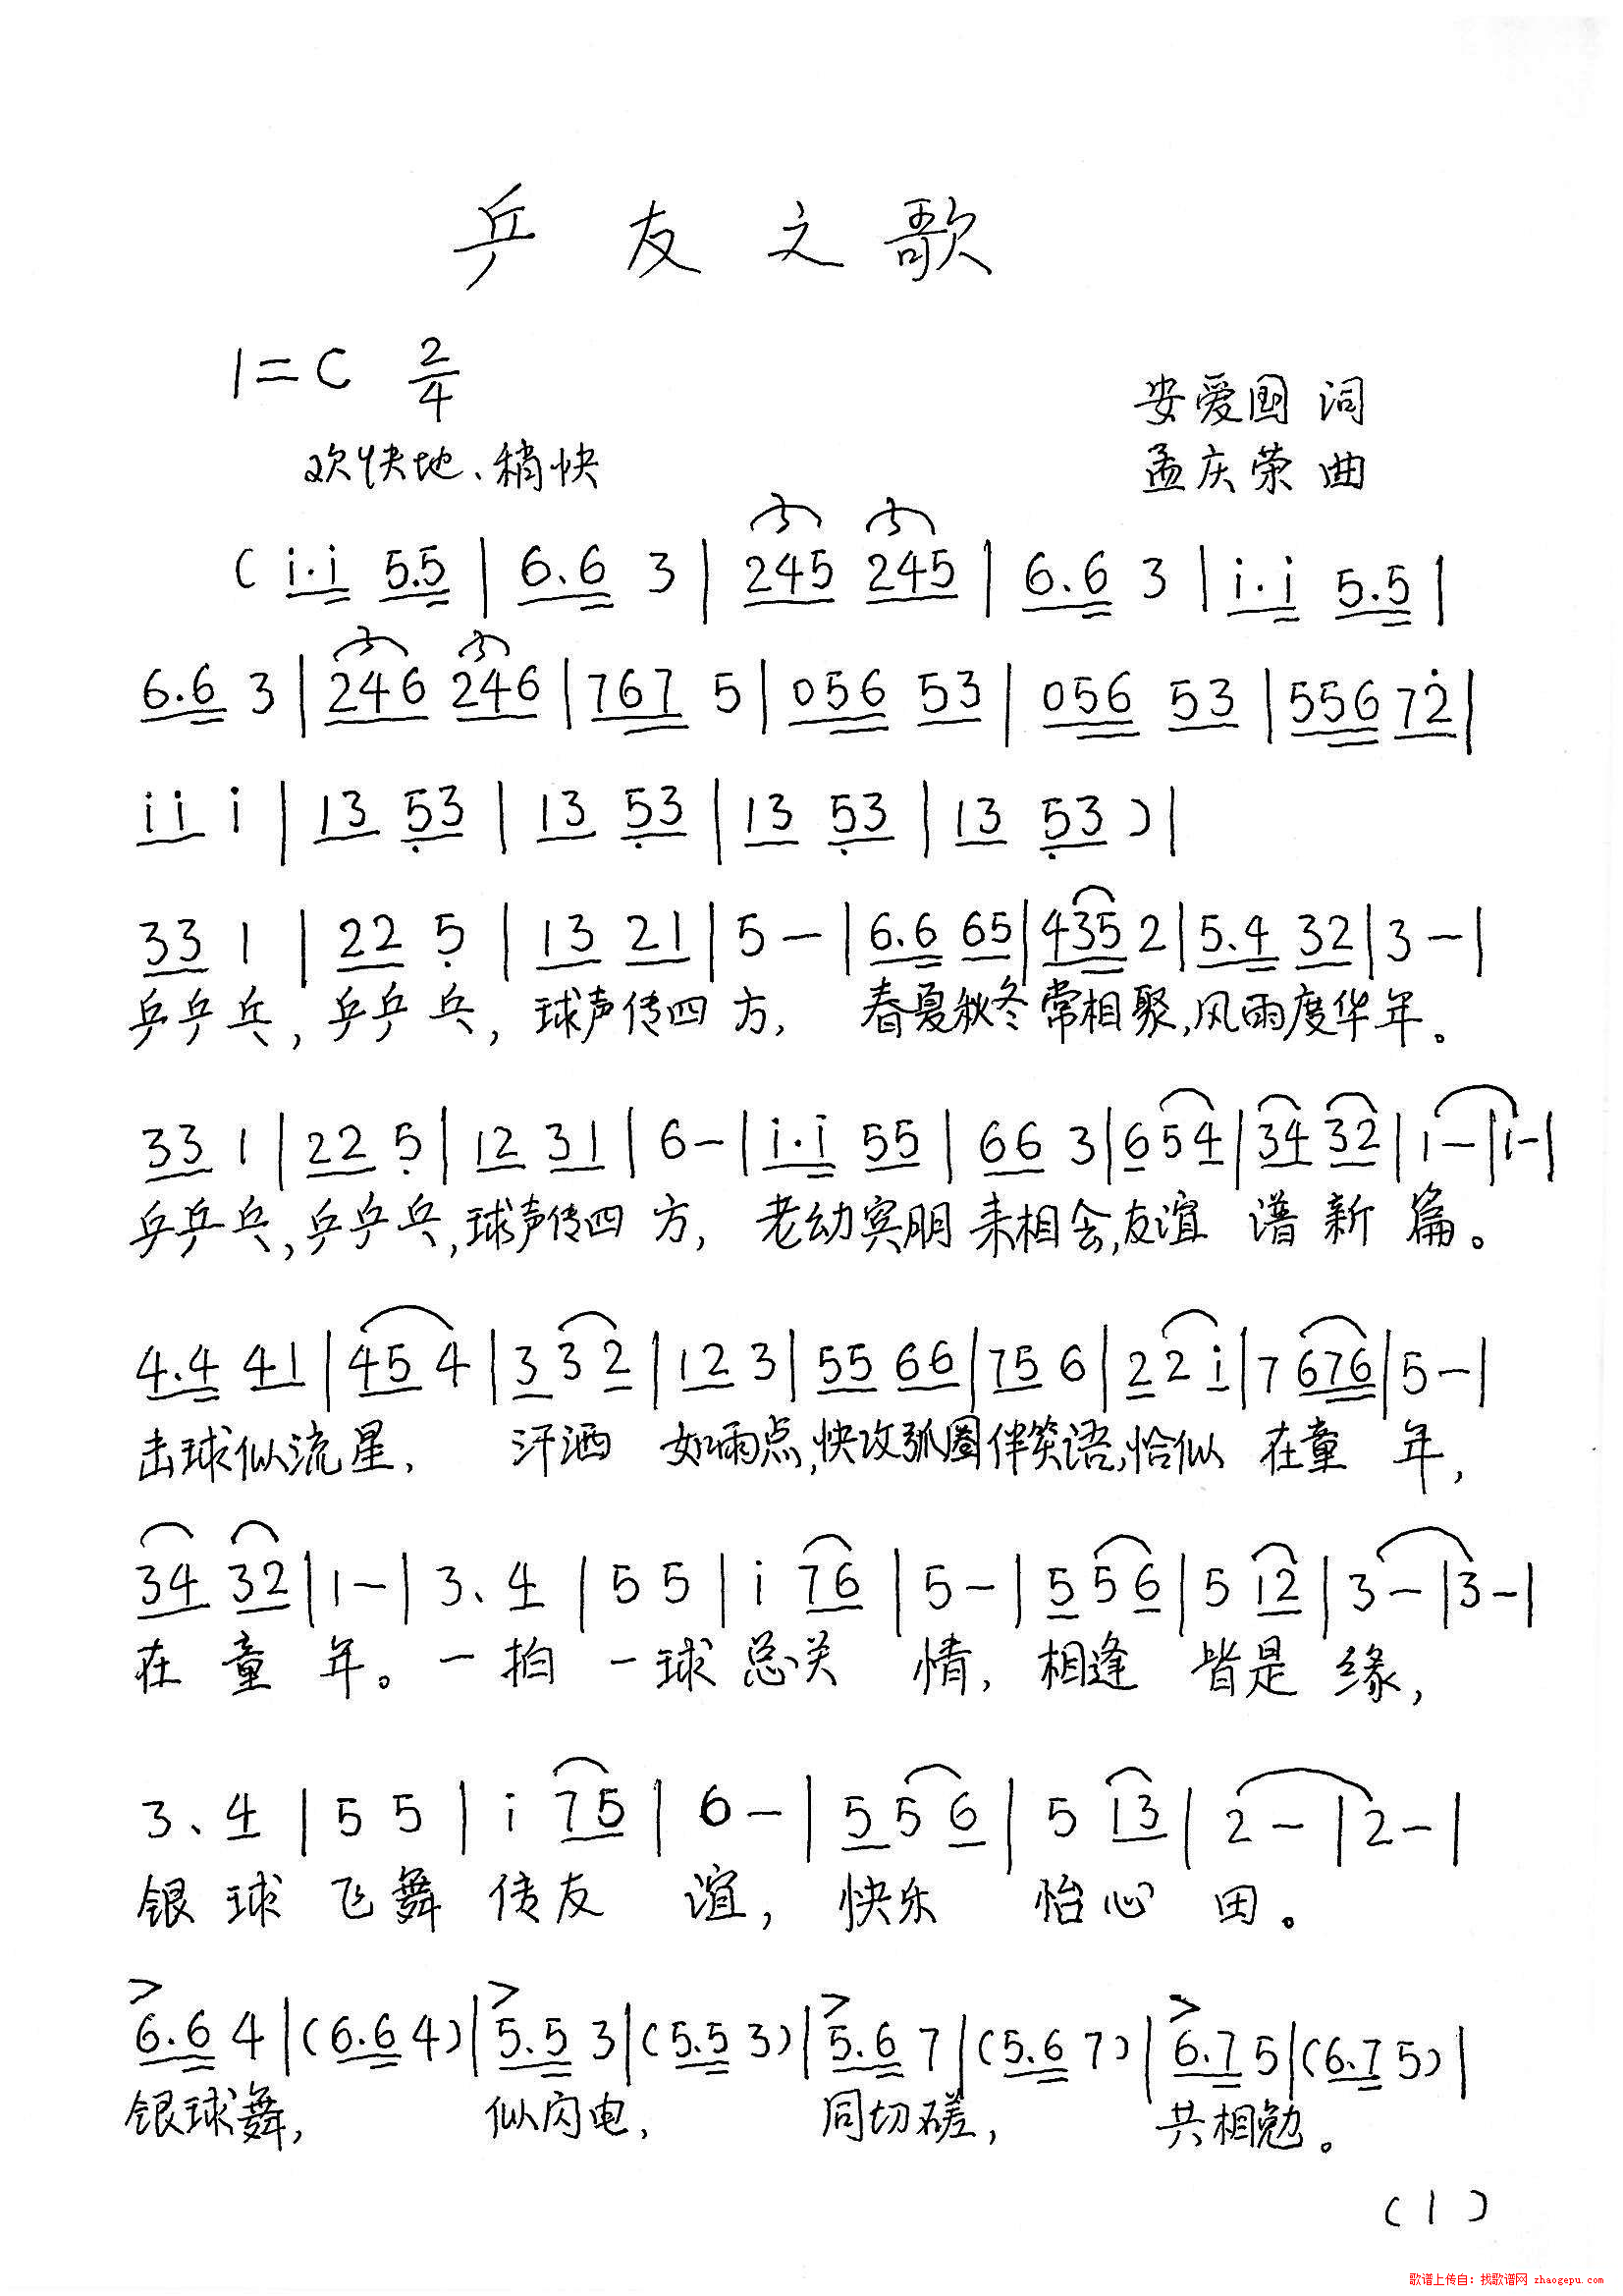 乒友之歌
1=C 2/4
安爱国 词
欢快地、稍快
孟庆荣 曲
(i·i 5.5 | 6.6 3 | 245 245 | 6.6 3 | i·i 5.5 |
6.6 3 | 246 246 | 767 5 | 056 53 | 056 53 | 556 72 |
ii i | 13 53 | 13 53 | 13 53 | 13 53 ) |
33 1 | 22 5 | 13 21 | 5 — | 6.6 65 | 435 2 | 5.4 32 | 3 — |
乒乒乓,乒乒乓,球声传四方,春夏秋冬常相聚,风雨度华年。
33 1 | 22 5 | 12 31 | 6 — | i·i 55 | 66 3 | 654 | 34 32 | 1 — | 1 — |
乒乒乓,乒乒乓,球声传四方,老幼宾朋来相会,友谊谱新篇。
4.4 41 | 45 4 | 3 3 2 | 12 3 | 55 66 | 75 6 | 2 2 i | 7 676 | 5 — |
击球似流星,汗洒如雨点,快攻弧圈伴笑语,恰似在童年,
34 32 | 1 — | 3. 4 | 5 5 | i 76 | 5 — | 5 5 6 | 5 12 | 3 — | 3 — |
在童年。一拍一球总关情,相逢皆是缘,
3. 4 | 5 5 | i 75 | 6 — | 5 5 6 | 5 13 | 2 — | 2 — |
银球飞舞传友谊,快乐怡心田。
> > > >
6.6 4 | (6.6 4) | 5.5 3 | (5.5 3) | 5.6 7 | (5.6 7) | 6.7 5 | (6.7 5) |
银球舞,似闪电,同切磋,共相勉。
(1)
歌谱上传自:找歌谱网 zhaogepu.com